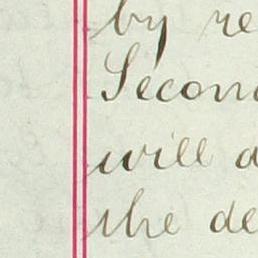 by re
Secon
will a
the de